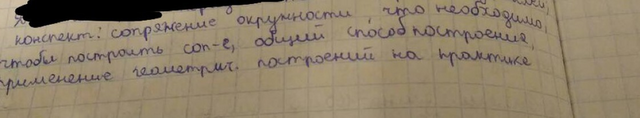 конспект: сопряжение окружности, что необходимо,
чтобы построить соп-е, общий способ построение,
применение геометрич. построений на практике